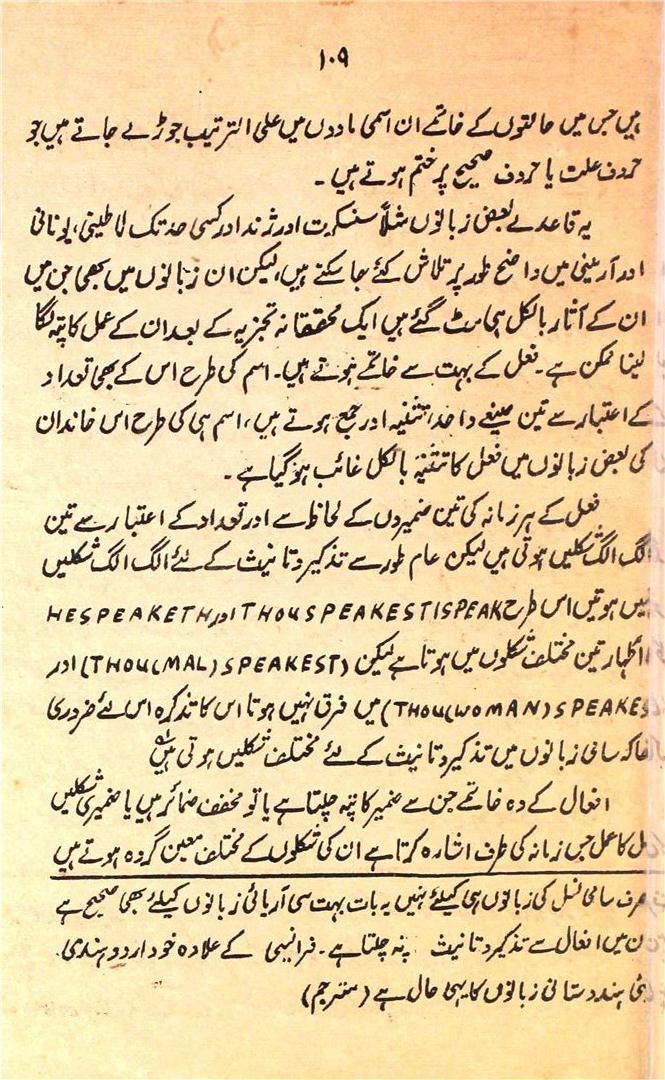 ۱۰۹
ہیں جس میں حالتوں کے خاتمے ان اسمی مادوں میں علی الترتیب جوڑے جاتے ہیں جو
حروف علت یا حروف صحیح پر ختم ہوتے ہیں ۔
یہ قاعدے بعض زبانوں مثلاً سنسکرت اور ژند اور کسی حد تک لاطینی، یونانی
اور آرمینی میں واضح طور پر تلاش کئے جا سکتے ہیں، لیکن ان زبانوں میں بھی جن میں
ان کے آثار بالکل ہی مٹ گئے ہیں ایک محققانہ تجزیہ کے بعد ان کے عمل کا پتہ لگا
لینا ممکن ہے ۔ فعل کے بہت سے خاتمے ہوتے ہیں۔ اسم کی طرح اس کے بھی تعداد
کے اعتبار سے تین صیغے واحد، تثنیہ اور جمع ہوتے ہیں، اسم ہی کی طرح اس خاندان
کی بعض زبانوں میں فعل کا تثنیہ بالکل غائب ہو گیا ہے ۔
فعل کے ہر زمانہ کی تین ضمیروں کے لحاظ سے اور تعداد کے اعتبار سے تین
الگ الگ شکلیں ہوتی ہیں لیکن عام طور سے تذکیر و تانیث کے لئے الگ الگ شکلیں
نہیں ہوتیں اس طرح I SPEAK THOU SPEAKEST اور HE SPEAKETH
کا اظہار تین مختلف شکلوں میں ہوتا ہے لیکن (THOU (MAL) SPEAKEST) اور
(THOU (WOMAN) SPEAKES میں فرق نہیں ہوتا اس کا تذکرہ اس لئے ضروری
تھا کہ سامی زبانوں میں تذکیر و تانیث کے لئے مختلف شکلیں ہوتی ہیں
افعال کے وہ خاتمے جن سے ضمیر کا پتہ چلتا ہے یا تو مخفف ضمائر ہیں یا ضمیری شکلیں
کا عمل جس زمانہ کی طرف اشارہ کرتا ہے ان کی شکلوں کے مختلف معین گروہ ہوتے ہیں
صرف سامی نسل کی زبانوں ہی کیلئے نہیں یہ بات بہت سی آریائی زبانوں کیلئے بھی صحیح ہے
ن میں افعال سے تذکیر و تانیث پتہ چلتا ہے ۔ فرانسیسی کے علاوہ خود اردو ہندی
ہندوستانی زبانوں کا یہی حال ہے (مترجم)